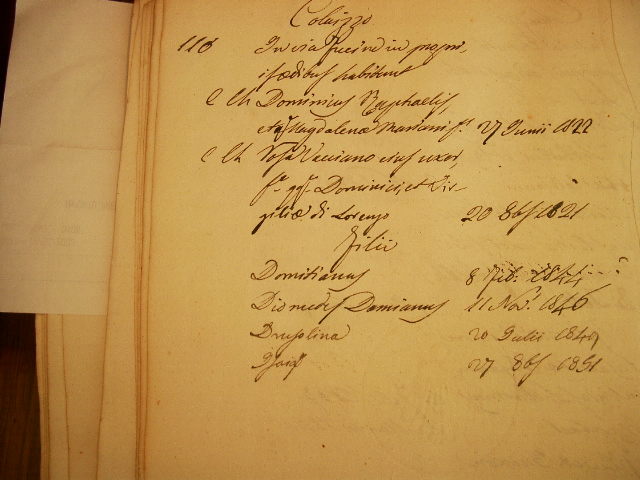 Colaizzo
118 In via Fucine in propri,
is ædibus habitant
C Ch Dominicus Raphaelis,
et Magdalenæ Mariani f.s 27 Junii 1822
C Ch Rosa Vacciano ejus uxor,
f.a qq. Dominici, et Vir,
giliæ di Lorenzo 20 8bs 1821
Filii
Domitianus 8 Feb. 1844
Diomedes Damianus 11 Nov. 1846
Drusolina 20 Julii 1849
27 8bs 1851